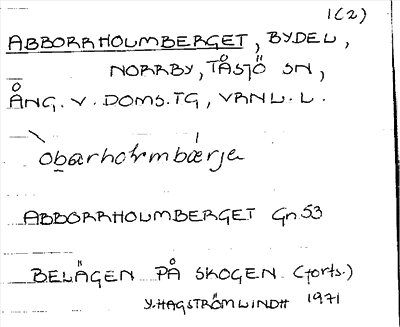 1(2)
ABBORRHOLMBERGET, BYDEL,
NORRBY, TÅSJÖ SN,
ÅNG. V. DOMS. TG, VRNL. L.
ABBORRHOLMBERGET Gn 53
BELÄGEN PÅ SKOGEN (forts.)
Y. HAGSTRÖM LINDH 1971